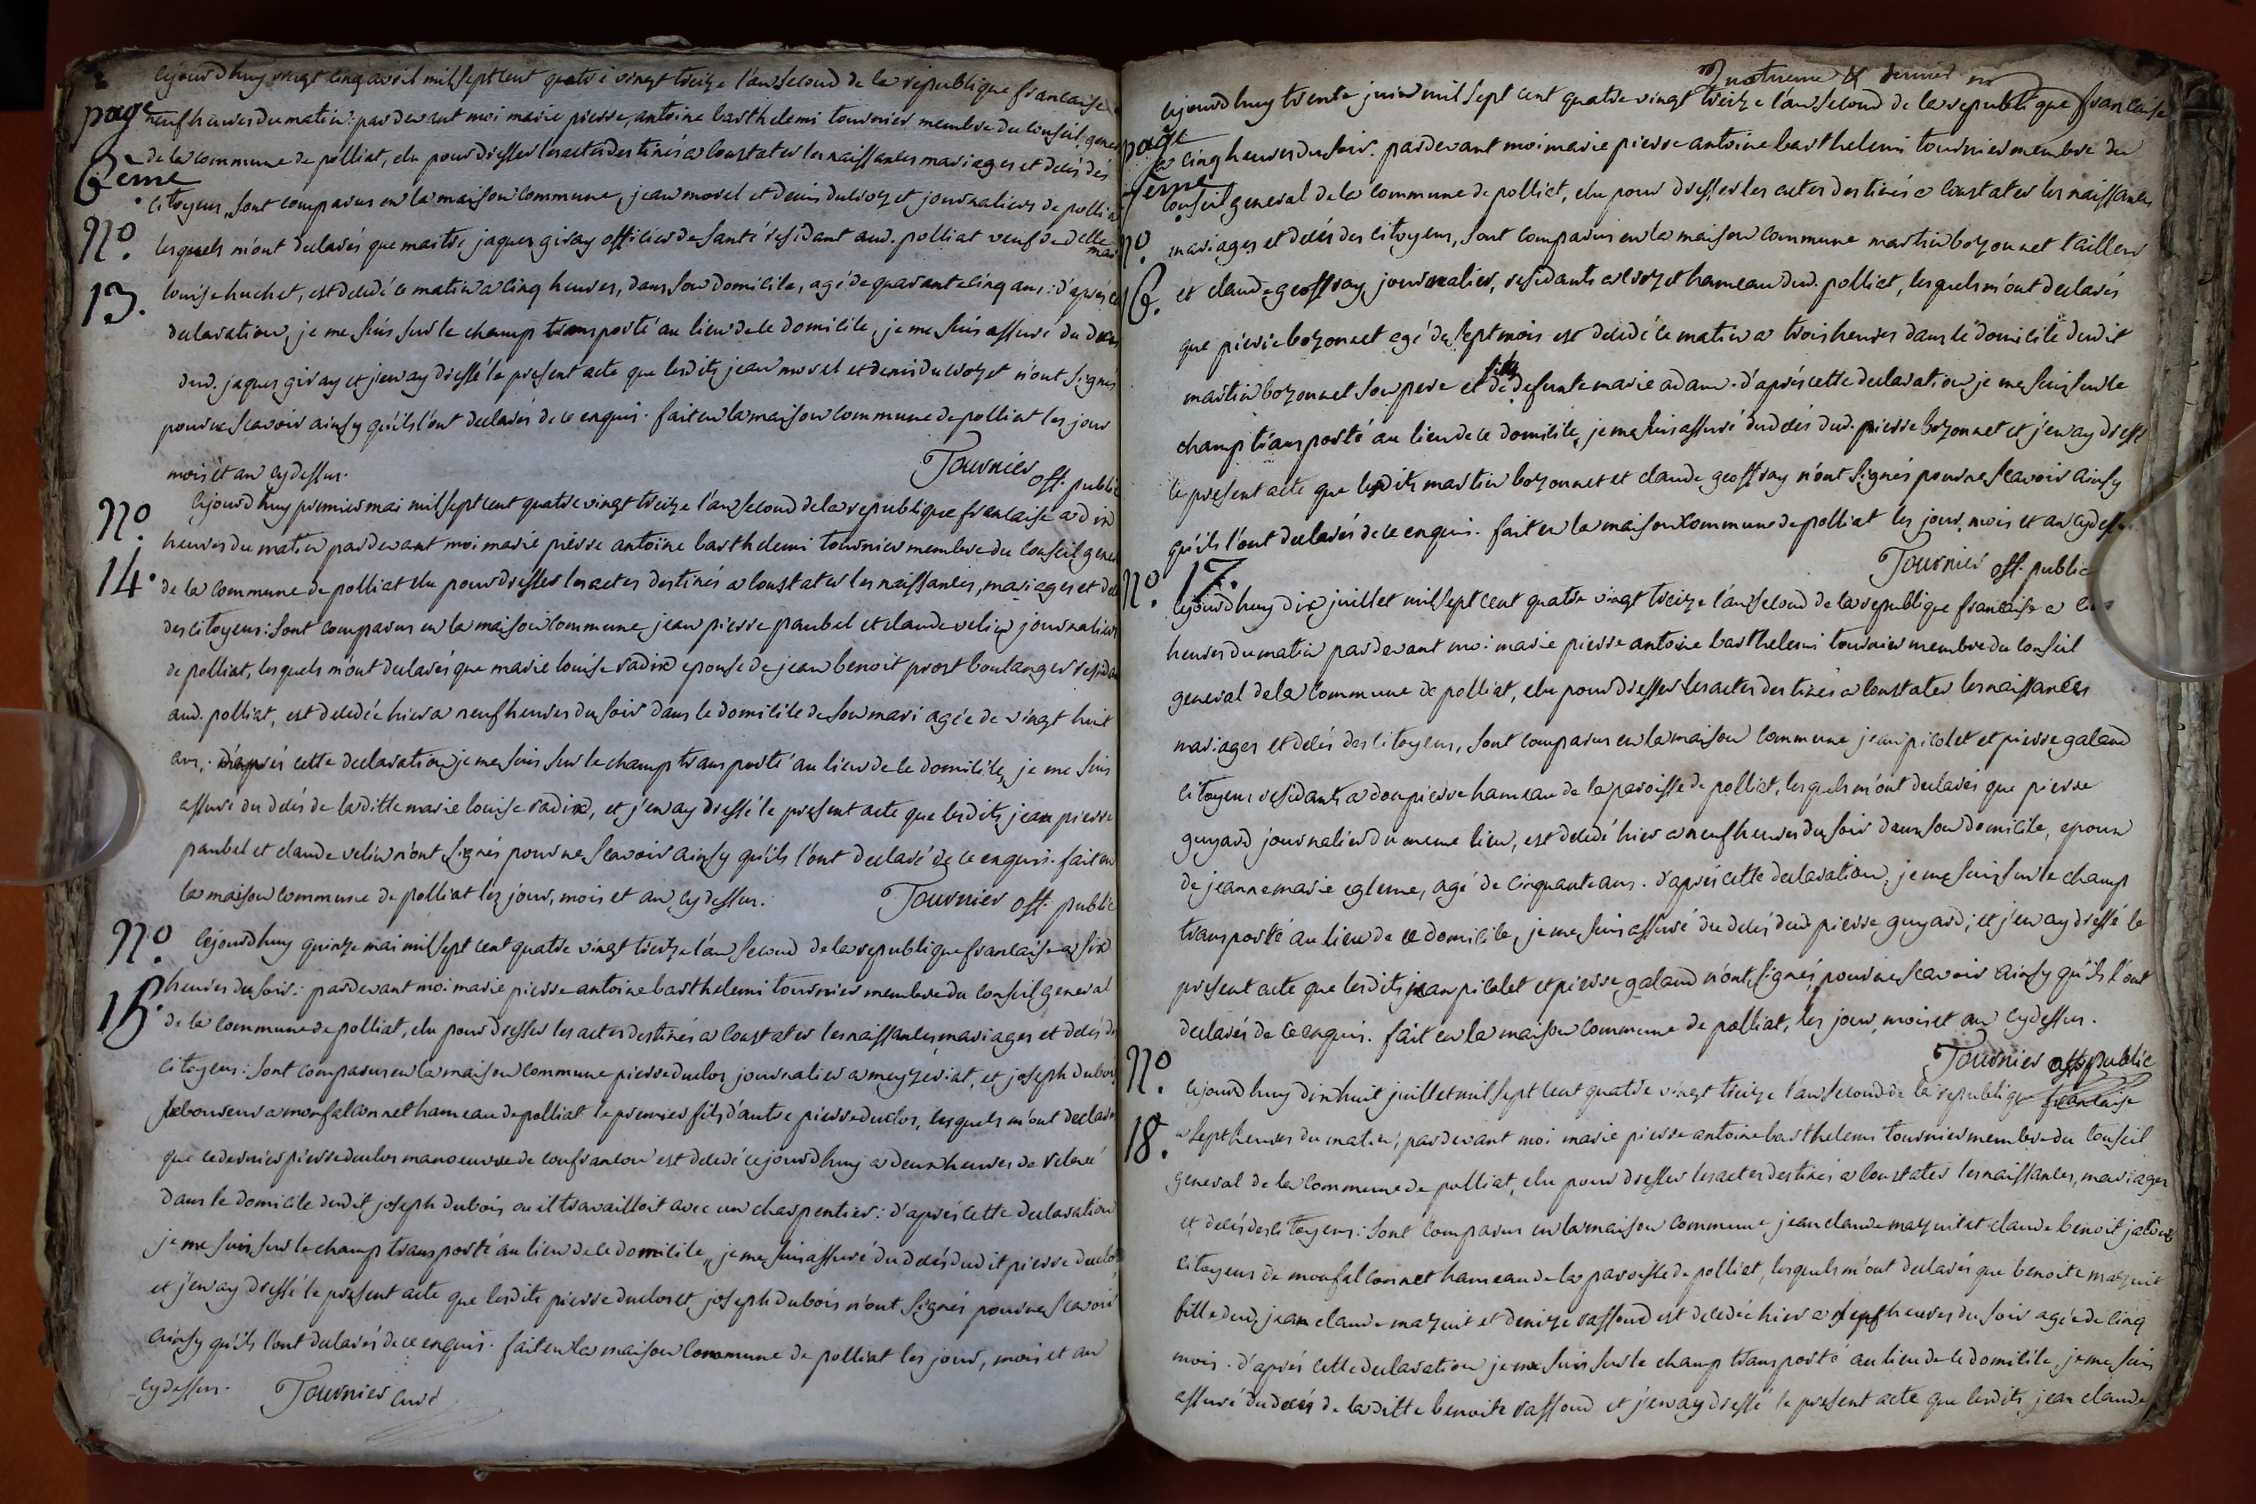 page
6eme
cejourdhuy vingt cinq avril mil sept cent quatre vingt treize l'an second de la republique francaise a
neuf heures du matin: pardevant moi marie pierre, antoine barthelemi tournier membre du conseil gene
de la commune de polliat, elu pour dresser les actes destinés a constater les naissances mariages et décés dés
citoyens, sont comparus en la maison commune, jean morel et denis ducrozet journaliers de pollia
No.
lesquels m'ont declarés que maitre jaques giray officier de santé residant aud. polliat veuf de delle
mar
13.
louise huchet, est decedé ce matin a cinq heures, dans son domicile, agé de quarante cinq ans: d'après ce
declaration, je me suis sur le champ transporté au lieu de ce domicile, je me suis assuré du deces
dud. jaques giray et j'en ay dressé le present acte que lesdits jean morel et denis ducrozet n'ont signés
pour ne scavoir ainsy qu'ils l'ont declarés de ce enquis. fait en la maison commune de polliat les jour
mois et an cydessus.
Tournier off. public
No.
14.
cejourdhuy premier mai mil sept cent quatre vingt treize l'an second de la republique francaise a dix
heures du matin pardevant moi marie pierre antoine barthelemi tournier membre du conseil gene
de la commune de polliat elu pour dresser les actes destinés a constater les naissances, mariages et dec
des citoyens: sont comparus en la maison commune jean pierre paubel et claude velin journaliers
de polliat, lesquels m'ont declarés que marie louise radix epouse de jean benoit prost boulanger residan
aud. polliat, est decedée hier a neuf heures du soir dans le domicile de son mari agée de vingt huit
ans,. d'après cette declaration je me suis sur le champ transporté au lieu de ce domicile, je me suis
assuré du decés de laditte marie louise radix, et j'en ay dressé le present acte que lesdits jean pierre
paubel et claude velin n'ont signés pour ne scavoir ainsy qu'ils l'ont declaré de ce enquis. fait en
la maison commune de polliat les jour, mois et an cydessus.
Tournier off. public
No.
15.
cejourdhuy quinze mai mil sept cent quatre vingt treize l'an second de la republique francaise a six
heures du soir: pardevant moi marie pierre antoine barthelemi tournier membre du conseil general
de la commune de polliat, elu pour dresser les actes destinés a constater les naissances, mariages et decés de
citoyens: sont comparus en la maison commune pierre duclos journalier a meyzeriat, et joseph dubois
laboureur a monfalconnet hameau de polliat le premier fils d'autre pierre duclos, lesquels m'ont declarés
que ce dernier pierre duclos manoeuvre de confrancon est decedé cejourdhuy a deux heures de relevé
dans le domicile dudit joseph dubois ou il travailloit avec un charpentier: d'après cette declaration
je me suis sur le champ transporté au lieu de ce domicile, je me suis assuré du decés dudit pierre duclos
et j'en ay dressé le present acte que lesdits pierre duclos et joseph dubois n'ont signés pour ne scavoir
ainsy qu'ils l'ont declarés de ce enquis. fait en la maison commune de polliat les jour, mois et an
cydessus.
Tournier curé
Quatrieme & dernier
page
7eme
cejourdhuy trente juin mil sept cent quatre vingt treize l'an second de la republique francaise
a cinq heures du soir. pardevant moi marie pierre antoine barthelemi tournier membre du
conseil general de la commune de polliat, elu pour dresser les actes destinés a constater les naissances
No.
16.
mariages et decés des citoyens, sont comparus en la maison commune martin bozonnet tailleur
et claude geoffray journalier, residants a hameau dud. polliat, lesquels m'ont declarés
que pierre bozonnet agé de sept mois est decedé ce matin a trois heures dans le domicile dudit
martin bozonnet son pere et de defunte marie adam. d'après cette declaration je me suis sur le
champ transporté au lieu de ce domicile, je me suis assuré du decés dud. pierre bozonnet et j'en ay dressé
le present acte que lesdits martin bozonnet et claude geoffray n'ont signés pour ne scavoir ainsy
qu'ils l'ont declarés de ce enquis. fait en la maison commune de polliat les jour, mois et an cydessus.
Tournier off. public
No. 17.
cejourdhuy dix juillet mil sept cent quatre vingt treize l'an second de la republique francaise a
heures du matin pardevant moi marie pierre antoine barthelemi tournier membre du conseil
general de la commune de polliat, elu pour dresser les actes destinés a constater les naissances
mariages et decés des citoyens, sont comparus en la maison commune jean picolet et pierre galand
citoyens residants a dompierre hameau de la paroisse de polliat, lesquels m'ont declarés que pierre
guyard journalier du meme lieu, est decedé hier a neuf heures du soir dans son domicile, epoux
de jeanne marie egleme, agé de cinquante ans. d'après cette declaration, je me suis sur le champ
transporté au lieu de ce domicile, je me suis assuré du decés dud. pierre guyard; et j'en ay dressé le
present acte que lesdits jean picolet et pierre galand n'ont signés pour ne scavoir ainsy qu'ils l'ont
declarés de ce enquis. fait en la maison commune de polliat, les jour, mois et an cydessus.
Tournier off. public
No.
18.
cejourdhuy dix huit juillet mil sept cent quatre vingt treize l'an second de la republique francaise
a sept heures du matin, pardevant moi marie pierre antoine barthelemi tournier membre du conseil
general de la commune de polliat, elu pour dresser les actes destinés a constater les naissances, mariages
et decés des citoyens: sont comparus en la maison commune jean claude mazuit et claude benoit
citoyens de monfalconnet hameau de la paroisse de polliat, lesquels m'ont declarés que benoite mazuit
fille dud. jean claude mazuit et denize rassoud est decedée hier a heures du soir agée de cinq
mois. d'après cette declaration je me suis sur le champ transporté au lieu de ce domicile, je me suis
assuré du decés de laditte benoite rassoud et j'en ay dressé le present acte que lesdits jean claude